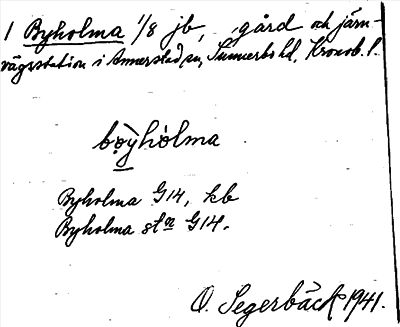 1 Byholma 1/8 jb, gård och järn-
vägsstation i Annerstad sn, Sunnerbo hd, Kronob. l.
bo̤yhòlma
Byholma G14, kb
Byholma stn G14.
O. Segerbäck 1941.